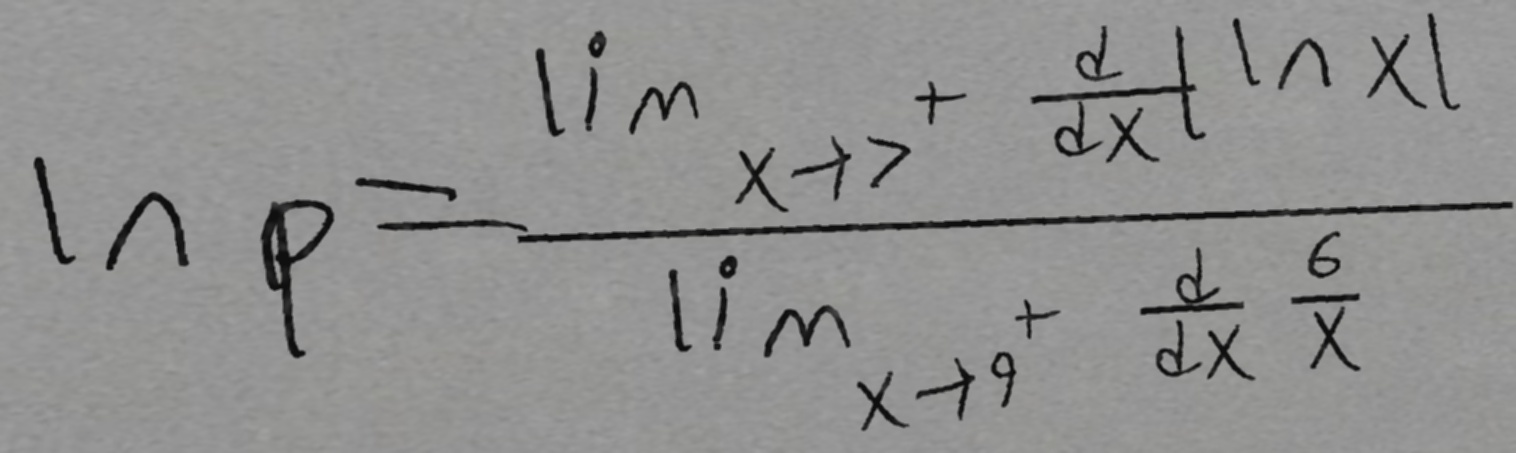 ln p = \frac{\lim_{x \to 7^+} \frac{d}{dx} |\ln x|}{\lim_{x \to 9^+} \frac{d}{dx} \frac{6}{x}}